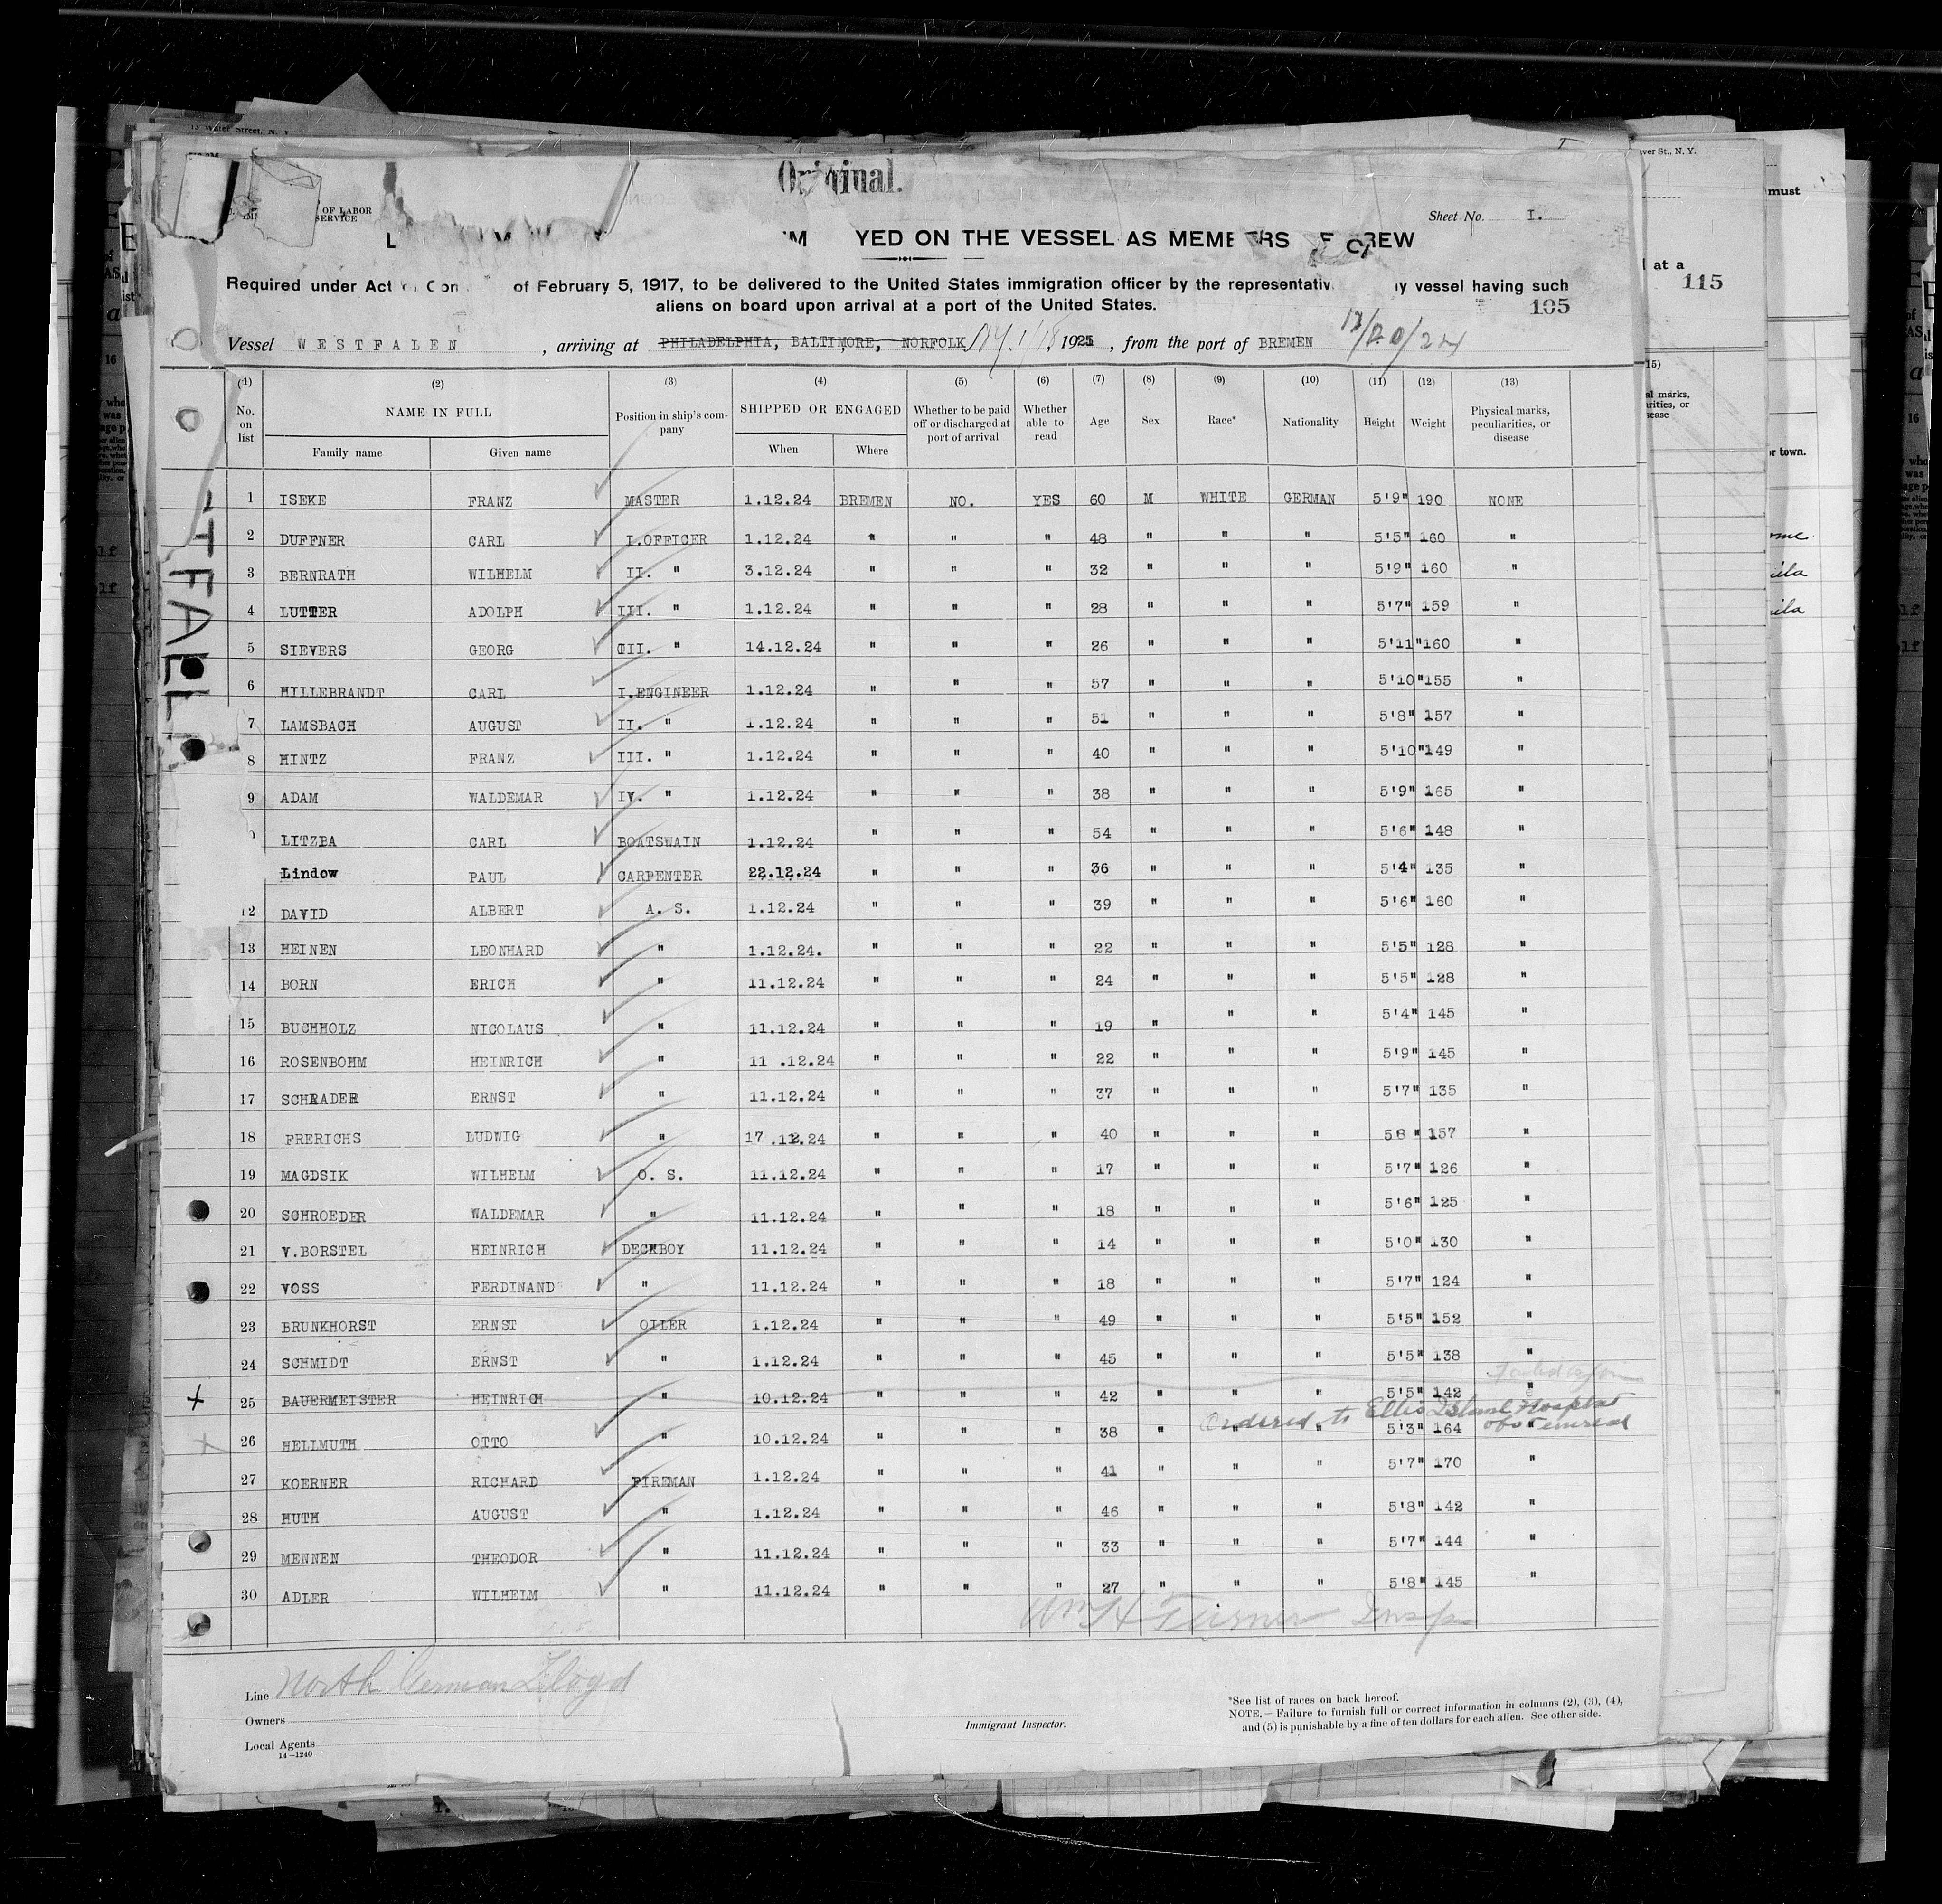 13 Water Street, N. Y.
Original.
OF LABOR
SERVICE
Sheet No. I.
YED ON THE VESSEL AS MEMBERS F CREW
Required under Act Con of February 5, 1917, to be delivered to the United States immigration officer by the representativ y vessel having such
aliens on board upon arrival at a port of the United States.
105
Vessel WESTFALEN, arriving at PHILADELPHIA, BALTIMORE, NORFOLK NY 1/18 1925, from the port of BREMEN 12/20/24
(1) (2) (3) (4) (5) (6) (7) (8) (9) (10) (11) (12) (13)
No. on list NAME IN FULL Family name Given name Position in ship's company SHIPPED OR ENGAGED When Where Whether to be paid off or discharged at port of arrival Whether able to read Age Sex Race* Nationality Height Weight Physical marks, peculiarities, or disease
1 ISEKE FRANZ MASTER 1.12.24 BREMEN NO. YES 60 M WHITE GERMAN 5'9" 190 NONE
2 DUFFNER CARL I.OFFICER 1.12.24 " " " 48 " " " 5'5" 160 "
3 BERNRATH WILHELM II. " 3.12.24 " " " 32 " " " 5'9" 160 "
4 LUTTER ADOLPH III. " 1.12.24 " " " 28 " " " 5'7" 159 "
5 SIEVERS GEORG III. " 14.12.24 " " " 26 " " " 5'11" 160 "
6 HILLEBRANDT CARL I.ENGINEER 1.12.24 " " " 57 " " " 5'10" 155 "
7 LAMSBACH AUGUST II. " 1.12.24 " " " 51 " " " 5'8" 157 "
8 HINTZ FRANZ III. " 1.12.24 " " " 40 " " " 5'10" 149 "
9 ADAM WALDEMAR IV. " 1.12.24 " " " 38 " " " 5'9" 165 "
LITZBA CARL BOATSWAIN 1.12.24 " " " 54 " " " 5'6" 148 "
Lindow PAUL CARPENTER 22.12.24 " " " 36 " " " 5'4" 135 "
12 DAVID ALBERT A. S. 1.12.24 " " " 39 " " " 5'6" 160 "
13 HEINEN LEONHARD " 1.12.24. " " " 22 " " " 5'5" 128 "
14 BORN ERICH " 11.12.24 " " " 24 " " " 5'5" 128 "
15 BUCHHOLZ NICOLAUS " 11.12.24 " " " 19 " " " 5'4" 145 "
16 ROSENBOHM HEINRICH " 11 .12.24 " " " 22 " " " 5'9" 145 "
17 SCHRADER ERNST " 11.12.24 " " " 37 " " " 5'7" 135 "
18 FRERICHS LUDWIG " 17 .12.24 " " " 40 " " " 58 " 157 "
19 MAGDSIK WILHELM O. S. 11.12.24 " " " 17 " " " 5'7" 126 "
20 SCHROEDER WALDEMAR " 11.12.24 " " " 18 " " " 5'6" 125 "
21 V.BORSTEL HEINRICH DECKBOY 11.12.24 " " " 14 " " " 5'0" 130 "
22 VOSS FERDINAND " 11.12.24 " " " 18 " " " 5'7" 124 "
23 BRUNKHORST ERNST OILER 1.12.24 " " " 49 " " " 5'5" 152 "
24 SCHMIDT ERNST " 1.12.24 " " " 45 " " " 5'5" 138 "
Failed to join
25 BAUERMEISTER HEINRICH " 10.12.24 " " " 42 " " " 5'5" 142 "
Ordered to Ellis Island Hospital
obs Venereal
26 HELLMUTH OTTO " 10.12.24 " " " 38 " " " 5'3" 164 "
27 KOERNER RICHARD FIREMAN 1.12.24 " " " 41 " " " 5'7" 170 "
28 HUTH AUGUST " 1.12.24 " " " 46 " " " 5'8" 142 "
29 MENNEN THEODOR " 11.12.24 " " " 33 " " " 5'7" 144 "
30 ADLER WILHELM " 11.12.24 " " " 27 " " " 5'8" 145 "
Wm H Turner Insp
Line North German Lloyd
Owners
Local Agents
14—1240
Immigrant Inspector.
*See list of races on back hereof.
NOTE.—Failure to furnish full or correct information in columns (2), (3), (4),
and (5) is punishable by a fine of ten dollars for each alien. See other side.
ver St., N. Y.
must
at a
115
or town.